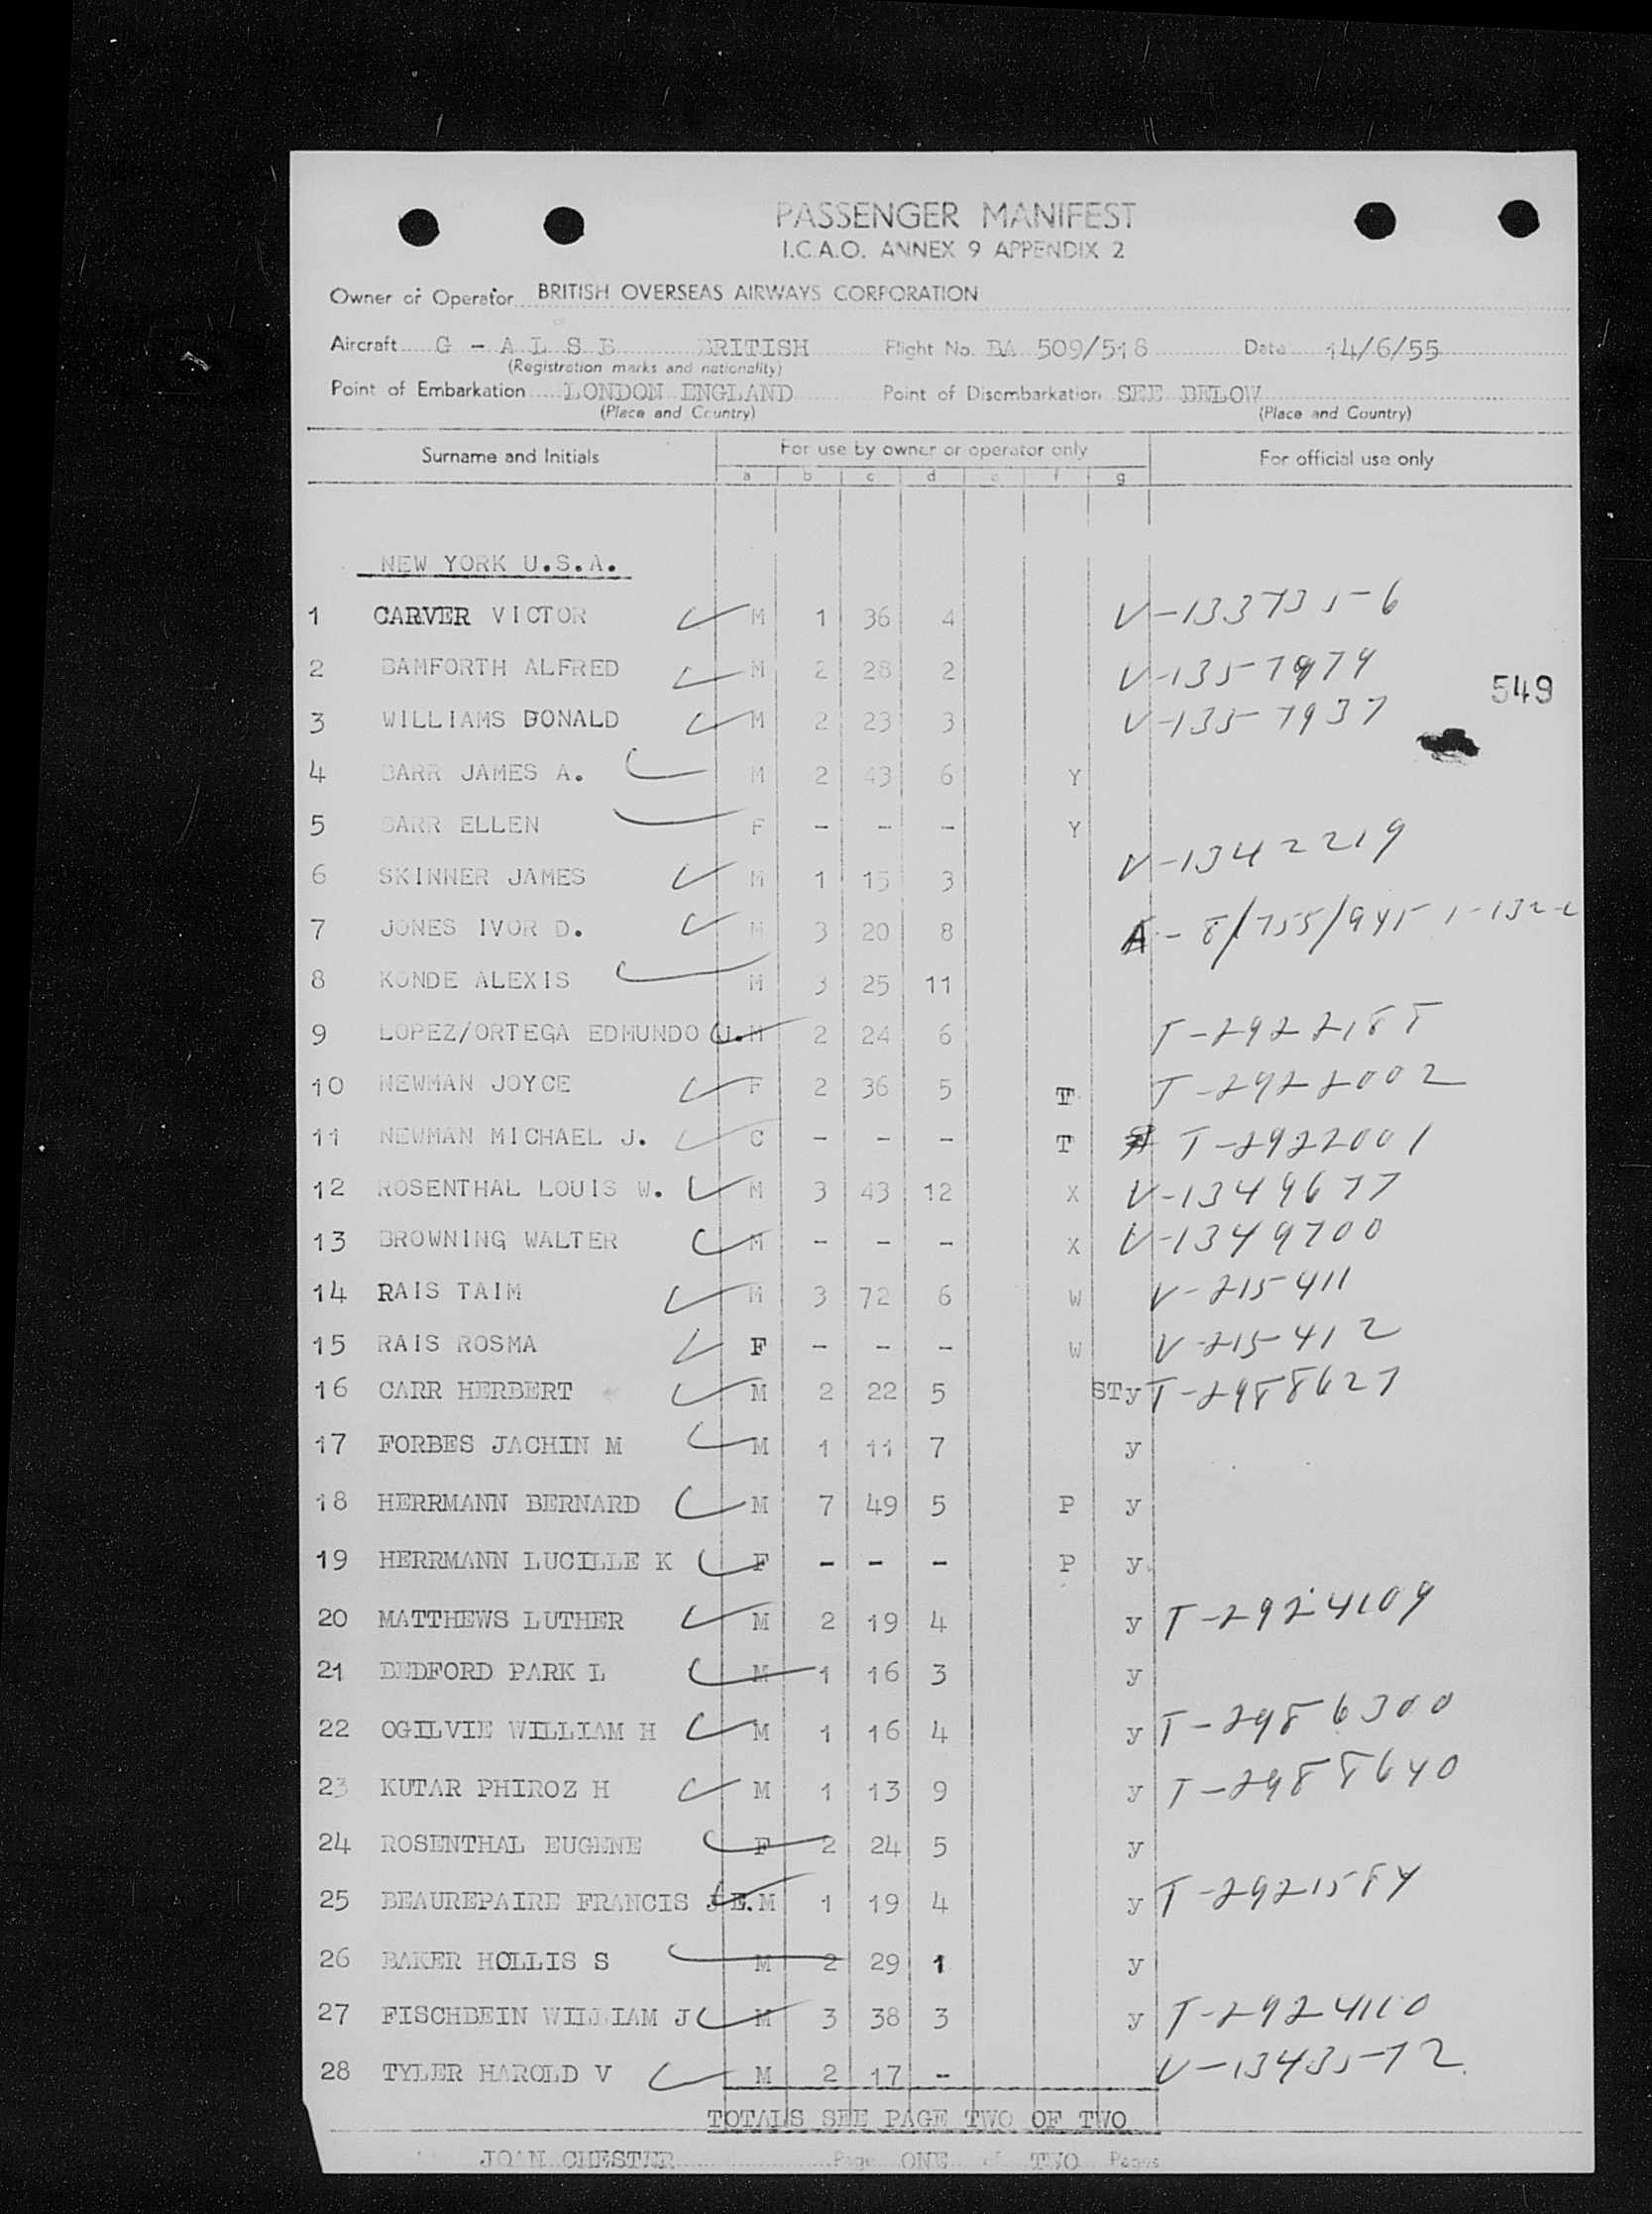 PASSENGER MANIFEST
I.C.A.O. ANNEX 9 APPENDIX 2
Owner or Operator BRITISH OVERSEAS AIRWAYS CORPORATION
Aircraft G - A L S B BRITISH Flight No. BA 509/518 Date 14/6/55
(Registration marks and nationality)
Point of Embarkation LONDON ENGLAND Point of Disembarkation SEE BELOW
(Place and Country) (Place and Country)
Surname and Initials For use by owner or operator only For official use only
a b c d e f g
NEW YORK U.S.A.
1 CARVER VICTOR M 1 36 4 V-133735-6
2 BAMFORTH ALFRED M 2 28 2 V-1357979
549
3 WILLIAMS DONALD M 2 23 3 V-1357937
4 BARR JAMES A. M 2 43 6 Y
5 BARR ELLEN F - - - Y
6 SKINNER JAMES M 1 15 3 V-1342219
7 JONES IVOR D. M 3 20 8 A-8/755/945
8 KONDE ALEXIS M 3 25 11
9 LOPEZ/ORTEGA EDMUNDO J.M 2 24 6 T-2922185
10 NEWMAN JOYCE F 2 36 5 T T-2922002
11 NEWMAN MICHAEL J. C - - - T T-2922001
12 ROSENTHAL LOUIS W. M 3 43 12 X V-1349677
13 BROWNING WALTER M - - - X V-1349700
14 RAIS TAIM M 3 72 6 W V-215411
15 RAIS ROSMA F - - - W V-215412
16 CARR HERBERT M 2 22 5 STy T-2988627
17 FORBES JACHIN M M 1 11 7 y
18 HERRMANN BERNARD M 7 49 5 P y
19 HERRMANN LUCILLE K F - - - P y
20 MATTHEWS LUTHER M 2 19 4 y T-2924109
21 BEDFORD PARK L M 1 16 3 y
22 OGILVIE WILLIAM H M 1 16 4 y T-2986300
23 KUTAR PHIROZ H M 1 13 9 y T-2988640
24 ROSENTHAL EUGENE F 2 24 5 y
25 BEAUREPAIRE FRANCIS J E.M 1 19 4 y T-2921584
26 BAKER HOLLIS S M 2 29 1 y
27 FISCHBEIN WILLIAM J M 3 38 3 y T-2924110
28 TYLER HAROLD V M 2 17 - V-1343572
TOTALS SEE PAGE TWO OF TWO
JOAN CHESTER Page ONE of TWO Pages